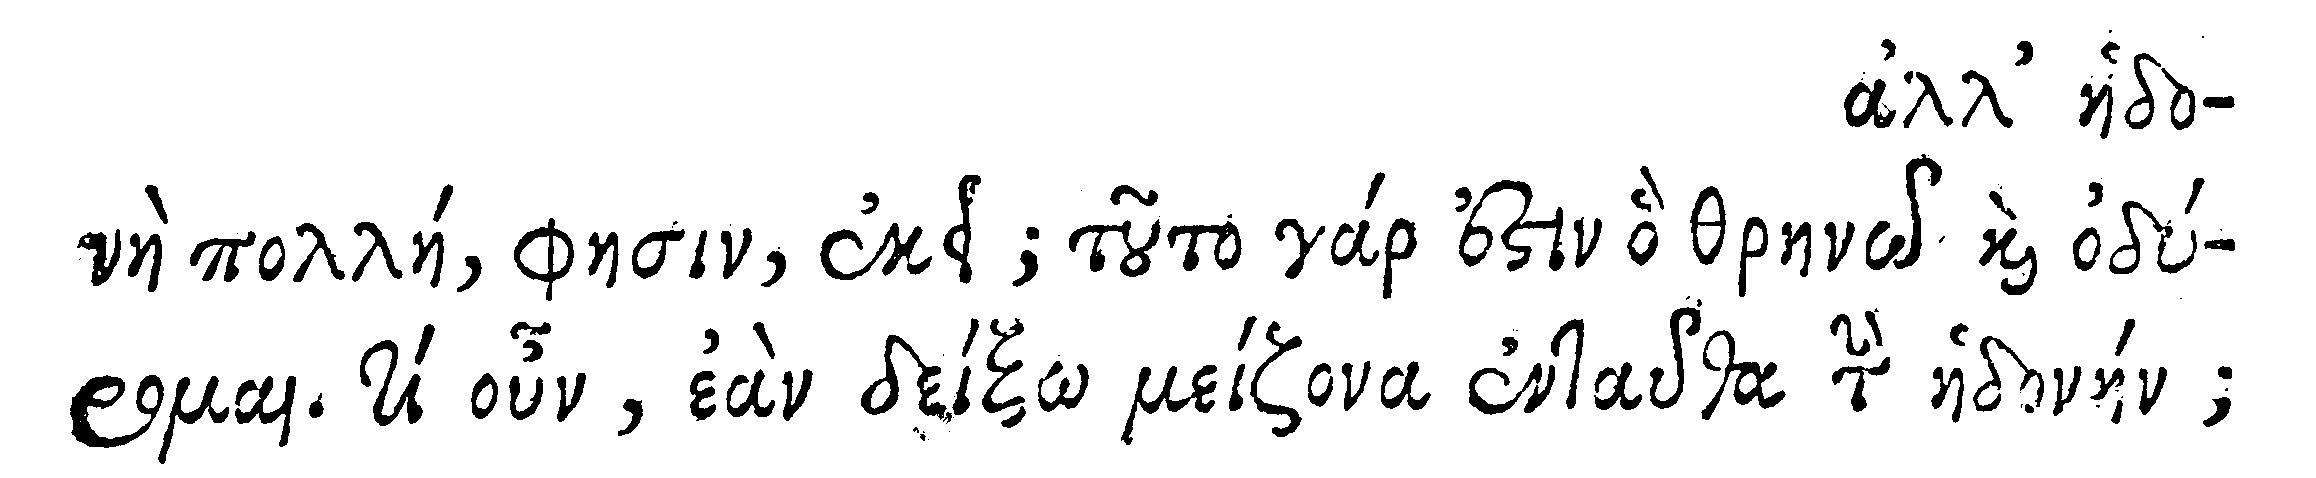 ἀλλ’ ἡδο-
νὴ πολλή, φησιν, ἐκεῖ; τοῦτο γάρ ἐστιν ὃ θρηνῶ καὶ ὀδύ-
ρομαι. τί οὖν, ἐὰν δείξω μείζονα ἐνταῦθα τὴν ἡδονήν;